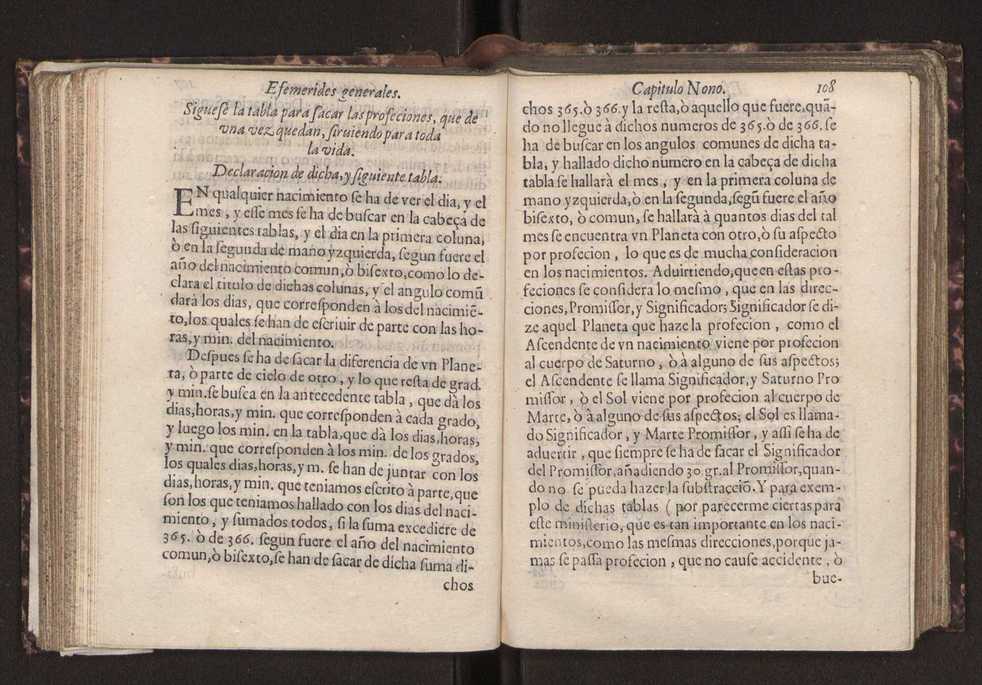 Efemerides generales.
Siguese la tabla para sacar las profeciones, que de
vna vez quedan, siruiendo para toda
la vida.
Declaracion de dicha, y siguiente tabla.
EN qualquier nacimiento se ha de ver el dia, y el
mes, y esse mes se ha de buscar en la cabeça de
las siguientes tablas, y el dia en la primera coluna,
ò en la segunda de mano yzquierda, segun fuere el
año del nacimiento comun, ò bisexto, como lo de-
clara el titulo de dichas colunas, y el angulo comũ
darà los dias, que corresponden à los del nacimiẽ-
to, los quales se han de escriuir de parte con las ho-
ras, y min. del nacimiento.
Despues se ha de sacar la diferencia de vn Plane-
ta, ò parte de cielo de otro, y lo que resta de grad.
y min. se busca en la antecedente tabla, que dà los
dias, horas, y min. que corresponden à cada grado,
y luego los min. en la tabla, que dà los dias, horas,
y min. que corresponden à los min. de los grados,
los quales dias, horas, y m. se han de juntar con los
dias, horas, y min. que teniamos escrito à parte, que
son los que teniamos hallado con los dias del naci-
miento, y sumados todos, si la suma excediere de
365. ò de 366. segun fuere el año del nacimiento
comun, ò bisexto, se han de sacar de dicha suma di-
chos
Capitulo Nono. 108
chos 365. ò 366. y la resta, ò aquello que fuere, quã-
do no llegue à dichos numeros de 365. ò de 366. se
ha de buscar en los angulos comunes de dicha ta-
bla, y hallado dicho numero en la cabeça de dicha
tabla se hallarà el mes, y en la primera coluna de
mano yzquierda, ò en la segunda, segũ fuere el año
bisexto, ò comun, se hallarà à quantos dias del tal
mes se encuentra vn Planeta con otro, ò su aspecto
por profecion, lo que es de mucha consideracion
en los nacimientos. Aduirtiendo, que en estas pro-
feciones se considera lo mesmo, que en las direc-
ciones, Promissor, y Significador; Significador se di-
ze aquel Planeta que haze la profecion, como el
Ascendente de vn nacimiento viene por profecion
al cuerpo de Saturno, ò à alguno de sus aspectos;
el Ascendente se llama Significador, y Saturno Pro
missor, ò el Sol viene por profecion al cuerpo de
Marte, ò à alguno de sus aspectos; el Sol es llama-
do Significador, y Marte Promissor, y assi se ha de
aduertir, que siempre se ha de sacar el Significador
del Promissor, añadiendo 30 gr. al Promissor, quan-
do no se pueda hazer la substracciõ. Y para exem-
plo de dichas tablas (por parecerme ciertas para
este ministerio, que es tan importante en los naci-
mientos, como las mesmas direcciones, porque ja-
mas se passa profecion, que no cause accidente, ò
bue-